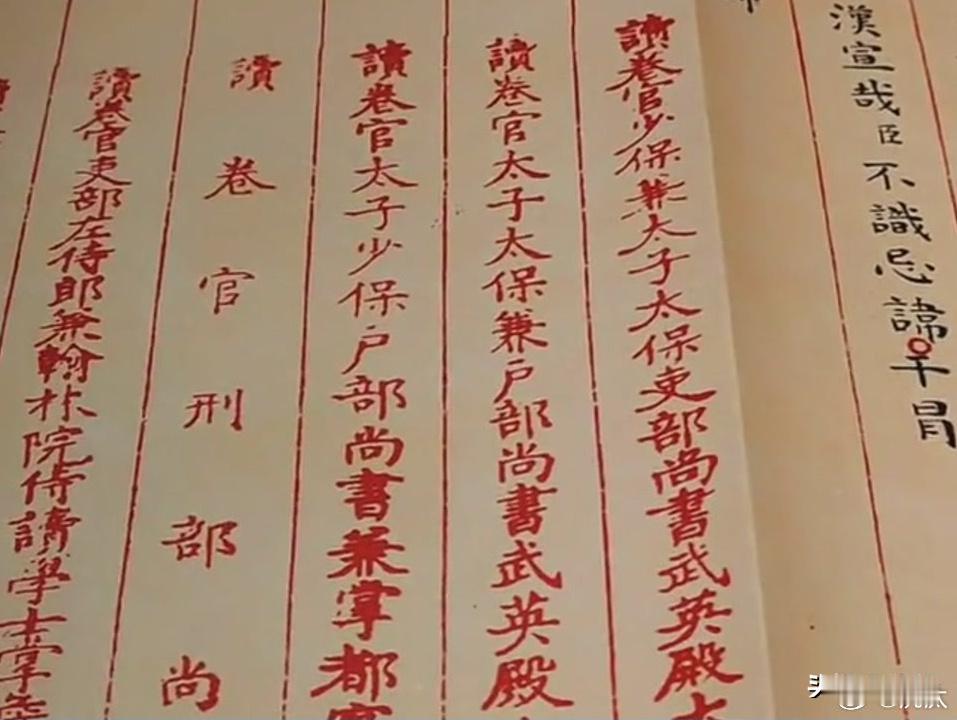 漢宣哉臣不識忌諱干冒
讀卷官少保兼太子太保吏部尚書武英殿大
讀卷官太子太保兼户部尚書武英殿
讀卷官太子少保户部尚書兼掌都察
讀卷官刑部尚
讀卷官吏部左侍郎兼翰林院侍讀學士掌